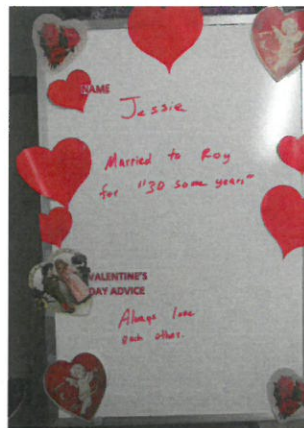 NAME
Jessie
Married to Roy
for "30 some years"
VALENTINE'S
DAY ADVICE
Always love
each other.